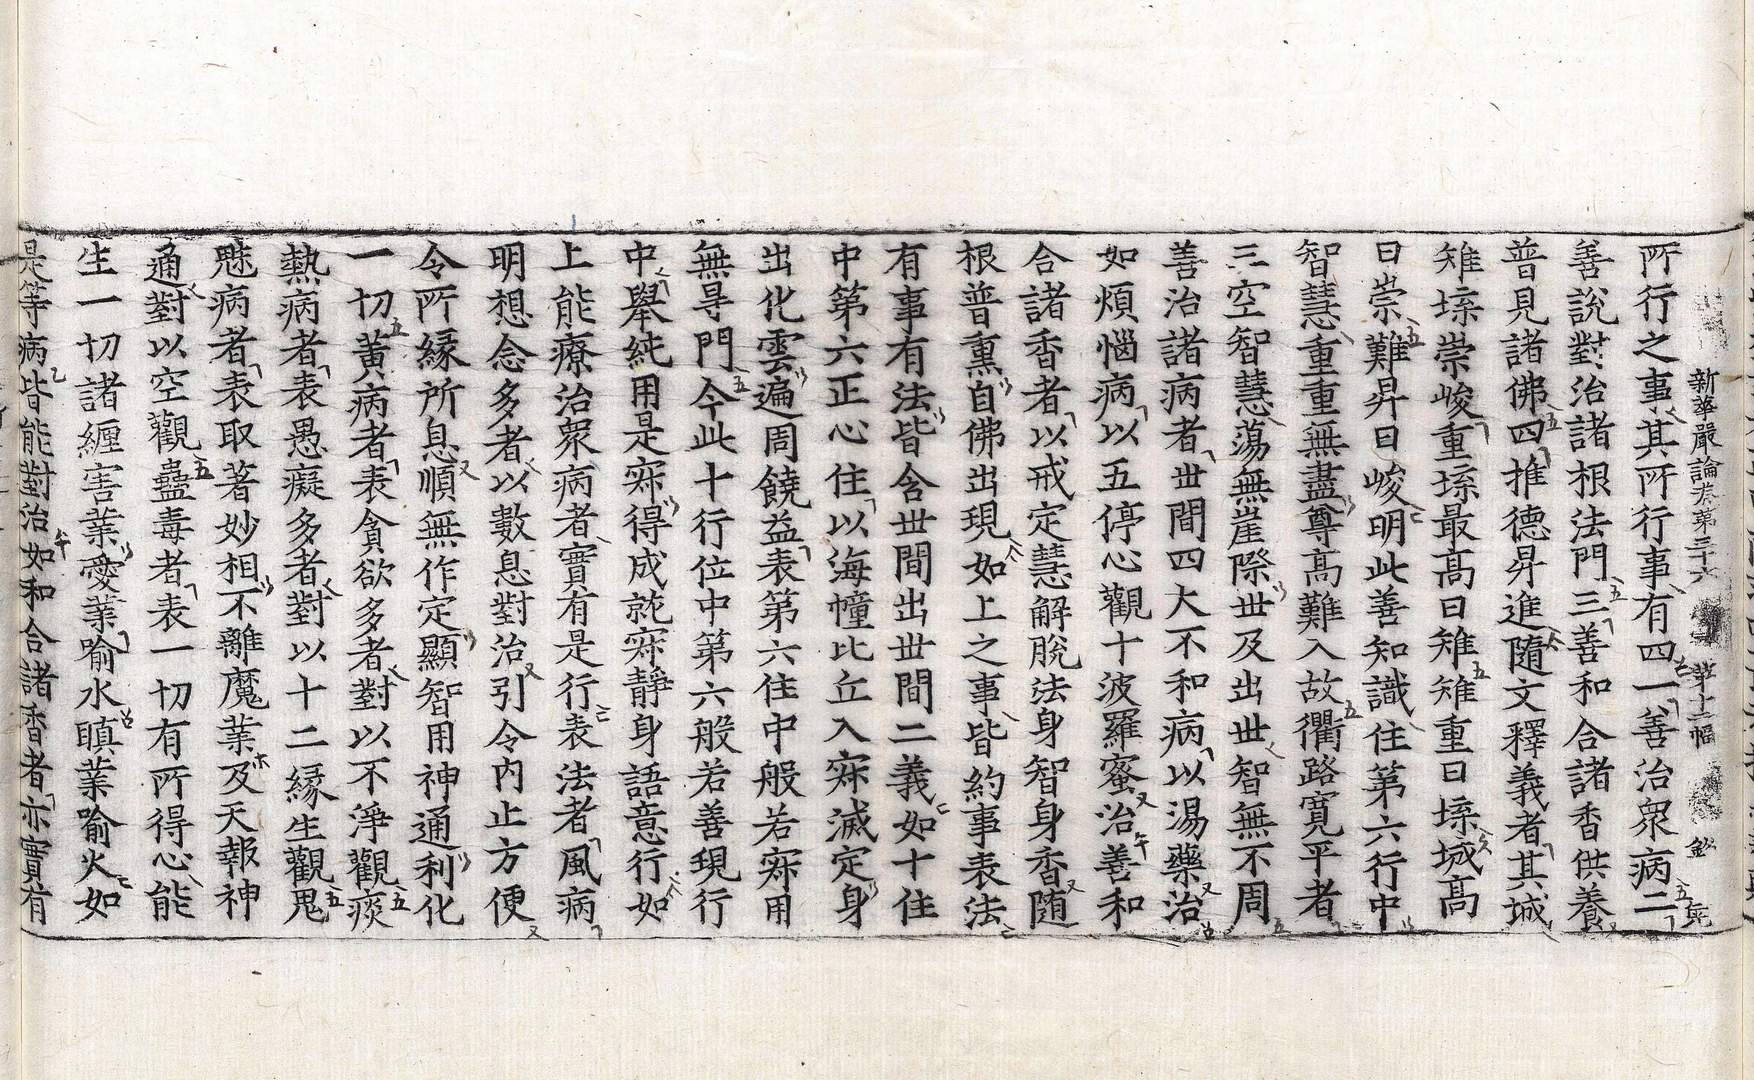 新華嚴論卷第三十六 第十二幅
所行之事其所行事有四一善治衆病二
善說對治諸根法門三善和合諸香供養
普見諸佛四推德昇進隨文釋義者其城
雉堞崇峻重堞最高曰雉雉重曰堞城高
曰崇難昇曰峻明此善知識住第六行中
智慧重重無盡尊高難入故衢路寬平者
三空智慧蕩無崖際丗及出世智無不周
善治諸病者丗間四大不和病以湯藥治
如煩惱病以五停心觀十波羅蜜治善和
合諸香者以戒定慧解脫法身智身香随
根普熏自佛出現如上之事皆約事表法
有事有法皆含丗間出丗間二義如十住
中第六正心住以海幢比丘入㝛滅定身
出化雲遍周饒益表第六住中般若㝛用
無㝵門今此十行位中第六般若善現行
中舉純用是㝛得成就㝛靜身語意行如
上能療治衆病者實有是行表法者風病
明想念多者以數息對治引令內止方便
令所緣所息順無作定顯智用神通利化
一切黃病者表貪欲多者對以不淨觀痰
熱病者表愚癡多者對以十二緣生觀鬼
魅病者表取著妙相不離魔業及天報神
通對以空觀蠱毒者表一切有所得心能
生一切諸纏害業愛業喻水瞋業喻火如
是等病皆能對治如和合諸香者亦實有